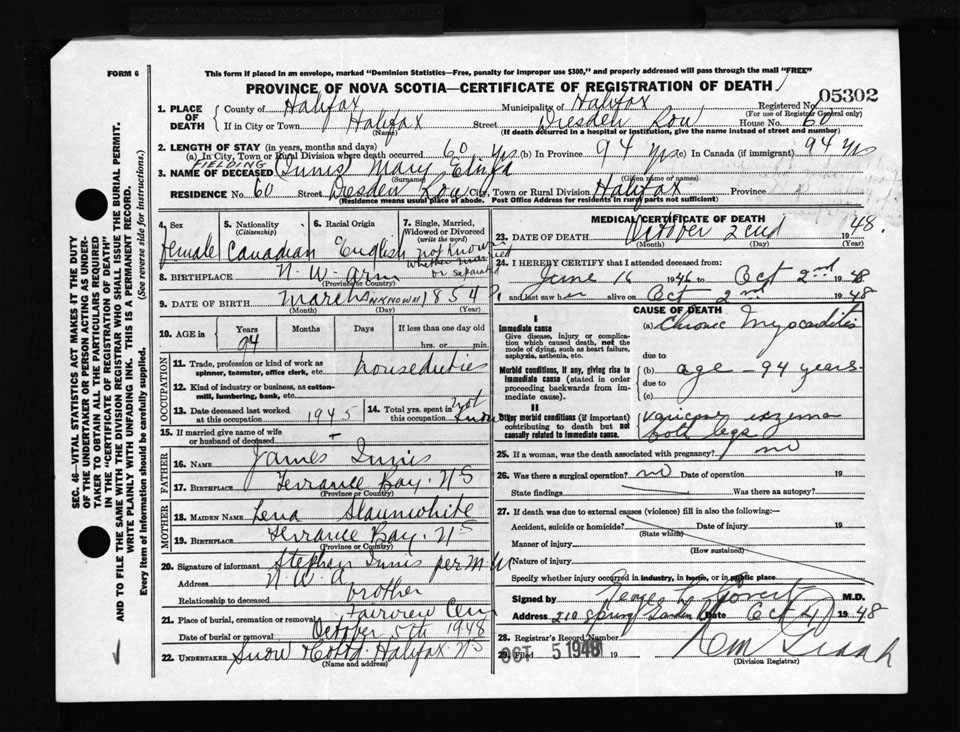 FORM 6
This form if placed in an envelope, marked "Dominion Statistics—Free, penalty for improper use $300," and properly addressed will pass through the mail "FREE"
PROVINCE OF NOVA SCOTIA—CERTIFICATE OF REGISTRATION OF DEATH
05302
1. PLACE OF DEATH County of Halifax Municipality of Halifax Registered No.
(For use of Registrar General only)
If in City or Town Halifax Street Dresden Row House No. 60
(Name) (If death occurred in a hospital or institution, give the name instead of street and number)
2. LENGTH OF STAY (in years, months and days)
(a) In City, Town or Rural Division where death occurred 60 yrs (b) In Province 94 yrs (c) In Canada (if immigrant) 94 yrs
FIELDING
3. NAME OF DECEASED Innis Mary
(Surname) (Given name or names)
RESIDENCE No. 60 Street Dresden Row City, Town or Rural Division Halifax Province
(Residence means usual place of abode. Post Office Address for residents in rural parts not sufficient)
4. Sex 5. Nationality (Citizenship) 6. Racial Origin 7. Single, Married, Widowed or Divorced (write the word)
Female Canadian English not known whether married or separated
8. BIRTHPLACE N.W. Arm
(Province or Country)
9. DATE OF BIRTH March UNKNOWN 1854
(Month) (Day) (Year)
10. AGE in Years Months Days If less than one day old
94 hrs. or min.
OCCUPATION
11. Trade, profession or kind of work as spinner, teamster, office clerk, etc. houseduties
12. Kind of industry or business, as cotton-mill, lumbering, bank, etc.
13. Date deceased last worked at this occupation 1945 14. Total yrs. spent in this occupation not
15. If married give name of wife or husband of deceased
FATHER
16. NAME James Innis
17. BIRTHPLACE Terrance Bay. N S
(Province or Country)
MOTHER
18. MAIDEN NAME Lena Slaunwhite
19. BIRTHPLACE Terrance Bay. N S
(Province or Country)
20. Signature of informant Stephen Innis per M W
Address N. W. A
Relationship to deceased brother
21. Place of burial, cremation or removal Fairview Cem
Date of burial or removal October 5th 1948
22. UNDERTAKER Snow & Co Ltd. Halifax N S
(Name and address)
MEDICAL CERTIFICATE OF DEATH
23. DATE OF DEATH October 2end 1948
(Month) (Day) (Year)
24. I HEREBY CERTIFY that I attended deceased from:
June 16 1946 to Oct 2nd 1948
and last saw her alive on Oct 2nd 1948
CAUSE OF DEATH
I
Immediate cause
Give disease, injury or complication which caused death, not the mode of dying, such as heart failure, asphyxia, asthenia, etc.
(a) Chronic Myocarditis
due to
Morbid conditions, if any, giving rise to immediate cause (stated in order proceeding backwards from immediate cause).
(b) age — 94 years.
due to
(c)
II
Other morbid conditions (if important) contributing to death but not causally related to immediate cause.
Varicose eczema both legs
25. If a woman, was the death associated with pregnancy? no
26. Was there a surgical operation? no Date of operation 19
State findings Was there an autopsy?
27. If death was due to external causes (violence) fill in also the following:—
Accident, suicide or homicide? Date of injury 19
(State which)
Manner of injury
(How sustained)
Nature of injury
Specify whether injury occurred in industry, in home, or in public place
Signed by George M.D.
Address 210 Spring Garden Date Oct 4 1948
28. Registrar's Record Number
29. Filed 19
OCT 5 1948
(Division Registrar)
SEC. 46—VITAL STATISTICS ACT MAKES IT THE DUTY OF THE UNDERTAKER OR PERSON ACTING AS UNDERTAKER TO OBTAIN ALL THE PARTICULARS REQUIRED IN THE "CERTIFICATE OF REGISTRATION OF DEATH" AND TO FILE THE SAME WITH THE DIVISION REGISTRAR WHO SHALL ISSUE THE BURIAL PERMIT.
WRITE PLAINLY WITH UNFADING INK. THIS IS A PERMANENT RECORD.
Every item of Information should be carefully supplied. (See reverse side for instructions.)